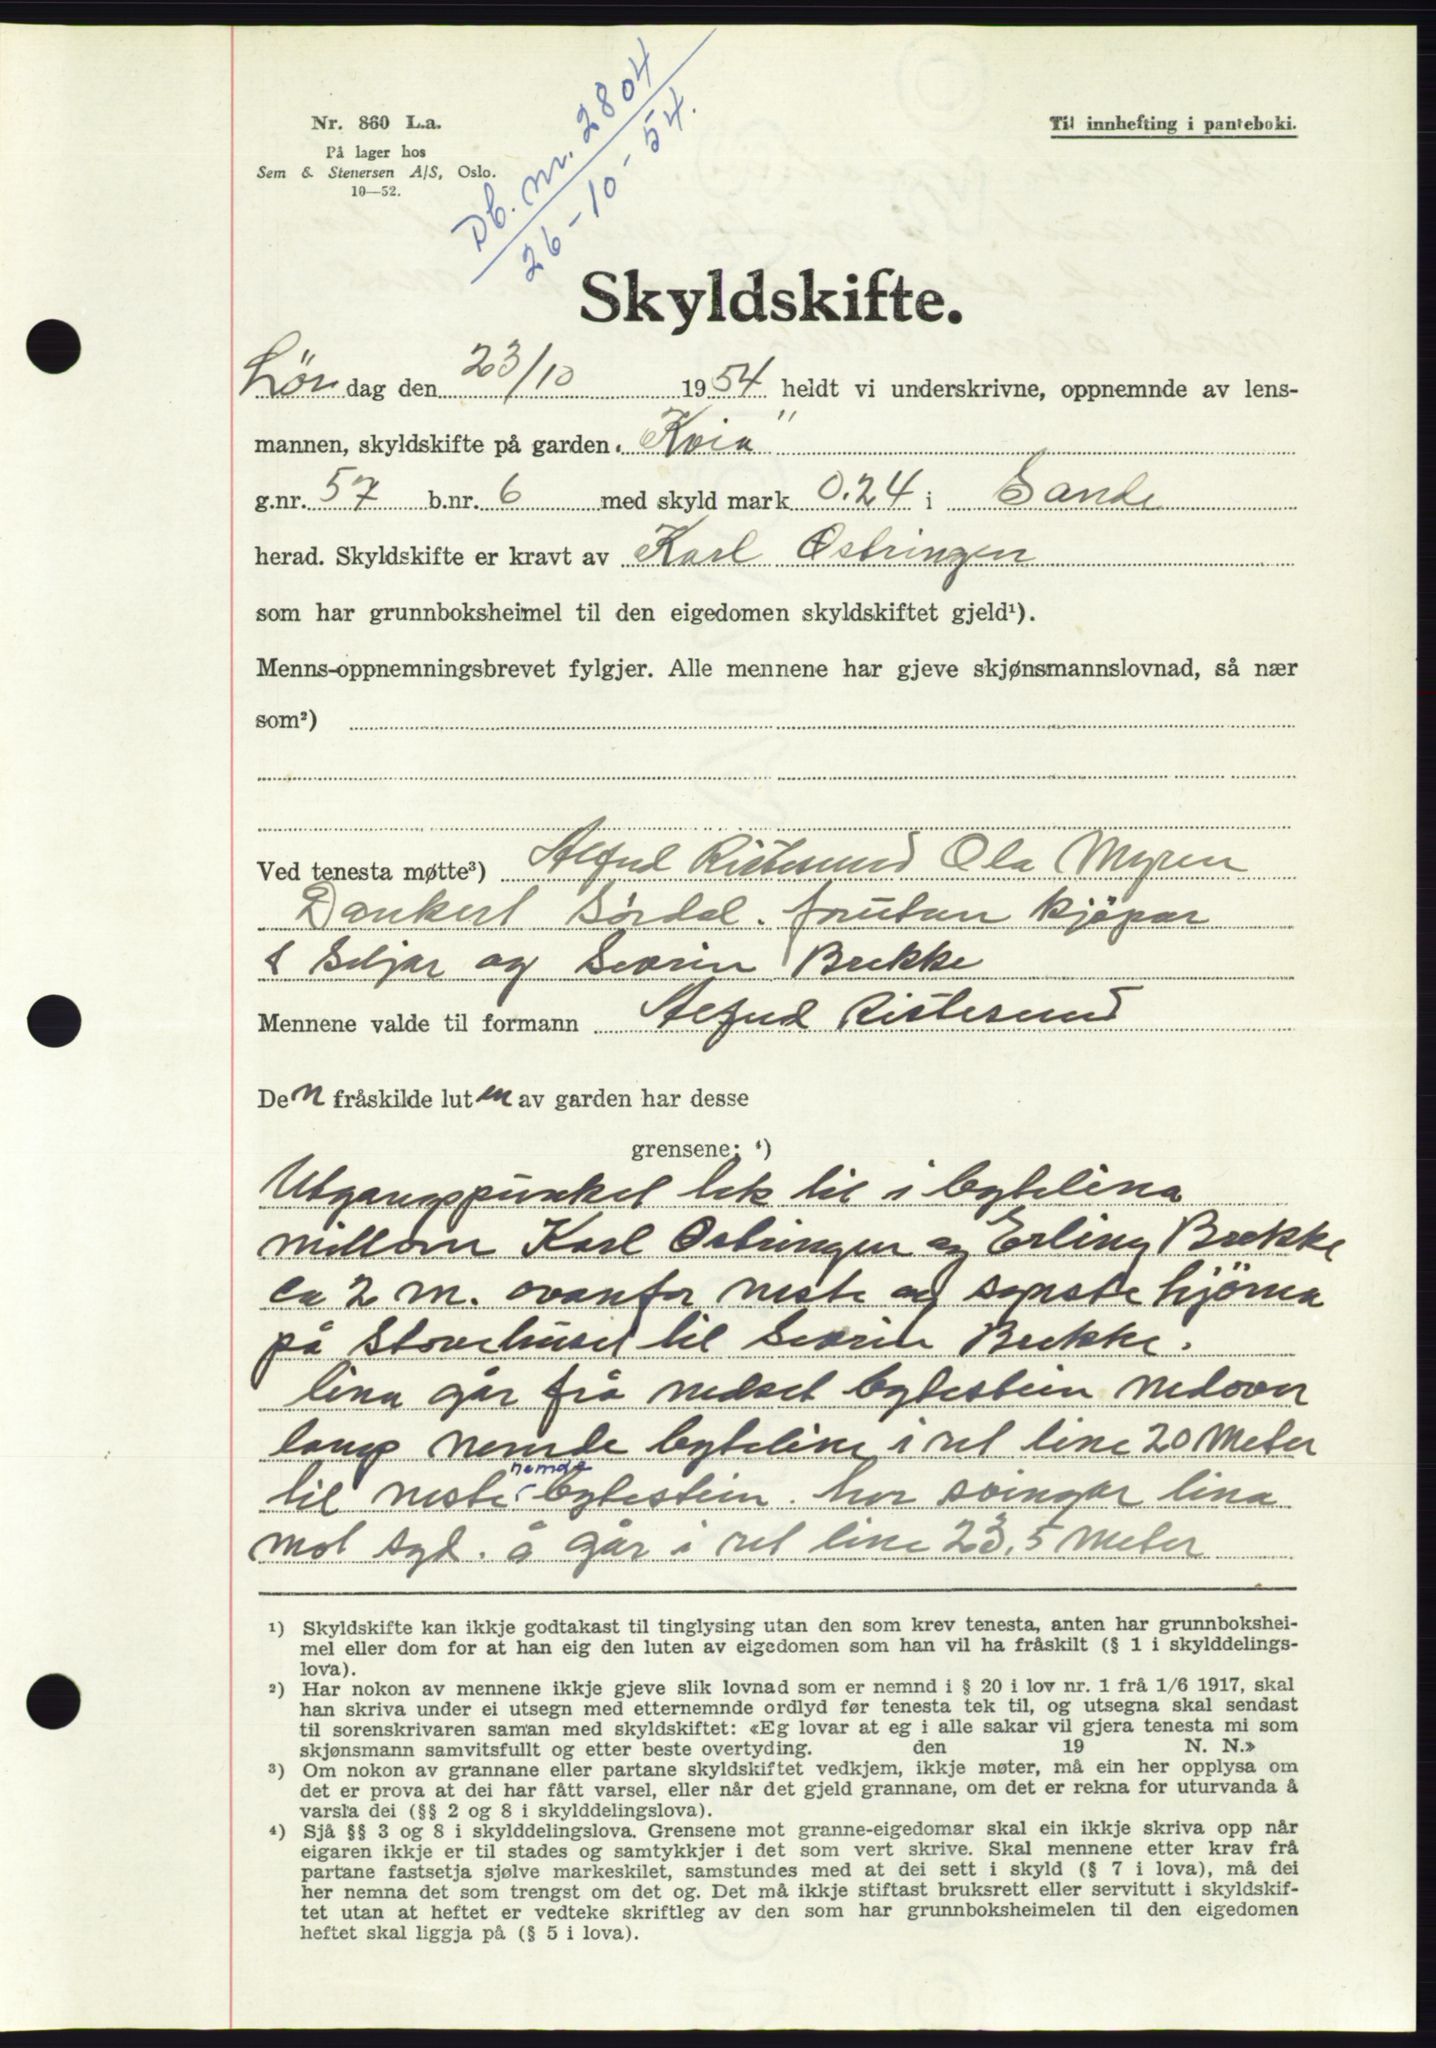 Nr. 860 L.a.
På lager hos
Sem & Stenersen A/S, Oslo.
10—52.
Db. nr. 2804
26-10-54.
Til innhefting i panteboki.
Skyldskifte.
Lør dag den 23/10 1954 heldt vi underskrivne, oppnemnde av lens-
mannen, skyldskifte på garden „Kvia"
g.nr. 57 b.nr. 6 med skyld mark 0.24 i Sande
herad. Skyldskifte er kravt av Karl Østringen
som har grunnboksheimel til den eigedomen skyldskiftet gjeld¹).
Menns-oppnemningsbrevet fylgjer. Alle mennene har gjeve skjønsmannslovnad, så nær
som²)
Ved tenesta møtte³) Alfred Ristesund Ola Myren
Dankert Sørdal. forutan kjøpar
& Seljar og Severin Brekke
Mennene valde til formann Alfred Ristesund
Den fråskilde luten av garden har desse
grensene: ⁴)
Utgangspunktet tek til i bytelina
millom Karl Østringen og Erling Brekke
ca 2 m. ovanfor neste og sørste hjørna
på Stovehuset til Severin Brekke.
lina går frå nedset bytestein nedover
langs nemde byteline i ret line 20 Meter
til neste nemde bytestein. her svingar lina
mot syd. å går i ret line 23,5 Meter
¹) Skyldskifte kan ikkje godtakast til tinglysing utan den som krev tenesta, anten har grunnbokshei-
mel eller dom for at han eig den luten av eigedomen som han vil ha fråskilt (§ 1 i skylddelings-
lova).
²) Har nokon av mennene ikkje gjeve slik lovnad som er nemnd i § 20 i lov nr. 1 frå 1/6 1917, skal
han skriva under ei utsegn med etternemnde ordlyd før tenesta tek til, og utsegna skal sendast
til sorenskrivaren saman med skyldskiftet: «Eg lovar at eg i alle sakar vil gjera tenesta mi som
skjønsmann samvitsfullt og etter beste overtyding. den 19 N. N.»
³) Om nokon av grannane eller partane skyldskiftet vedkjem, ikkje møter, må ein her opplysa om
det er prova at dei har fått varsel, eller når det gjeld grannane, om det er rekna for uturvanda å
varsla dei (§§ 2 og 8 i skylddelingslova).
⁴) Sjå §§ 3 og 8 i skylddelingslova. Grensene mot granne-eigedomar skal ein ikkje skriva opp når
eigaren ikkje er til stades og samtykkjer i det som vert skrive. Skal mennene etter krav frå
partane fastsetja sjølve markeskilet, samstundes med at dei sett i skyld (§ 7 i lova), må dei
her nemna det som trengst om det og. Det må ikkje stiftast bruksrett eller servitutt i skyldskif-
tet utan at heftet er vedteke skriftleg av den som har grunnboksheimelen til den eigedomen
heftet skal liggja på (§ 5 i lova).